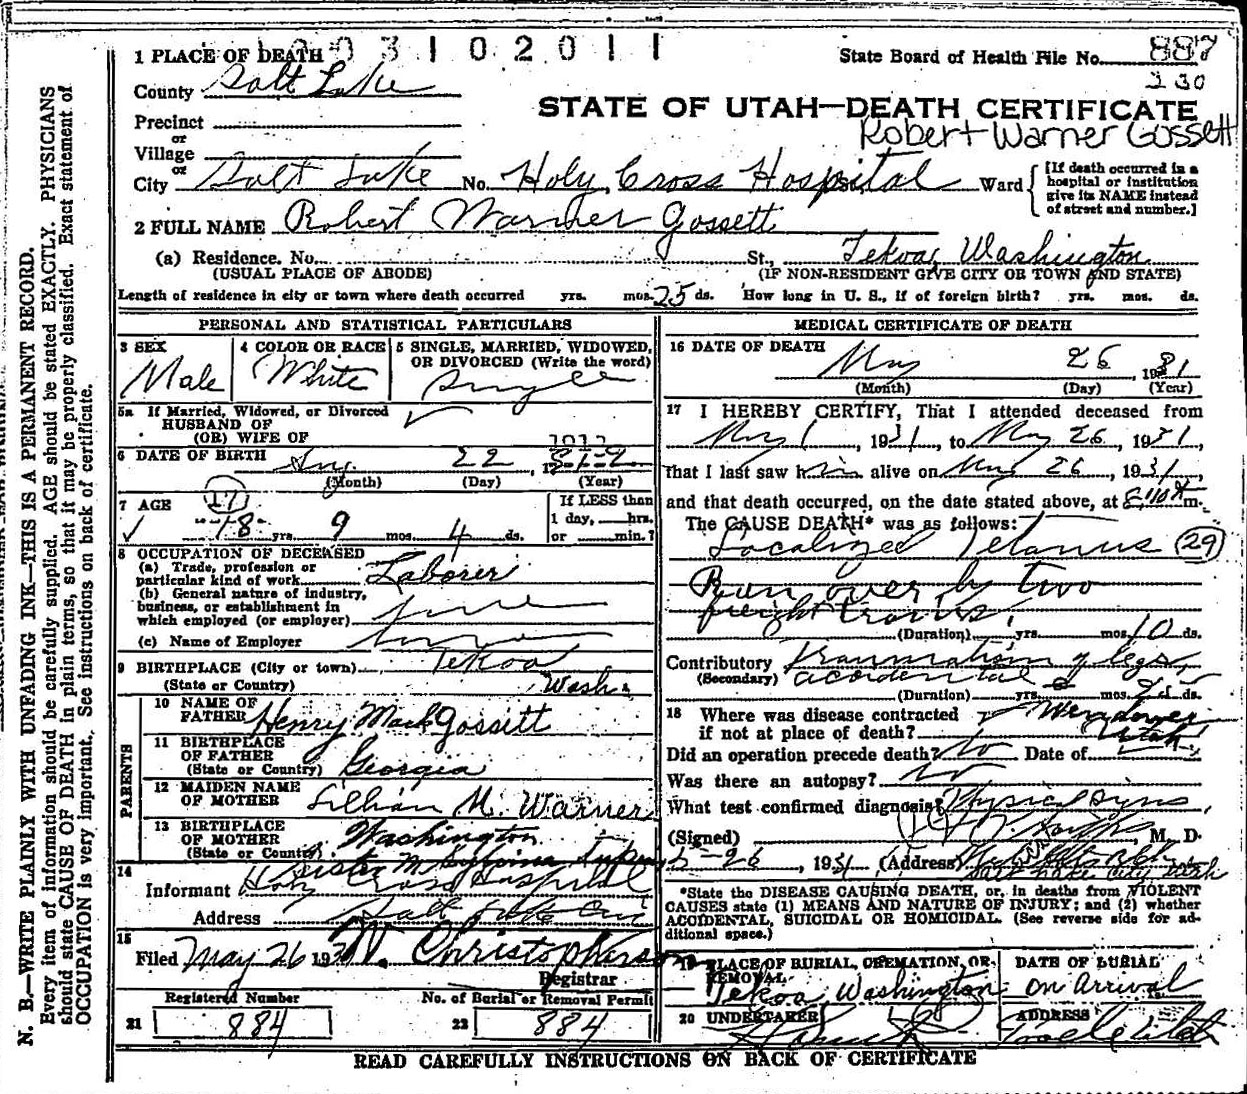 1 PLACE OF DEATH
1 2 0 3 1 0 2 0 1 1
State Board of Health File No. 887
230
County Salt Lake
STATE OF UTAH—DEATH CERTIFICATE
Robert Warner Gossett
Precinct
or
Village
or
City Salt Lake No. Holy Cross Hospital Ward
[If death occurred in a hospital or institution give its NAME instead of street and number.]
2 FULL NAME Robert Warner Gossett
(a) Residence. No. St., Tekoa, Washington
(USUAL PLACE OF ABODE) (IF NON-RESIDENT GIVE CITY OR TOWN AND STATE)
Length of residence in city or town where death occurred yrs. mos. 25 ds. How long in U. S., if of foreign birth? yrs. mos. ds.
PERSONAL AND STATISTICAL PARTICULARS
3 SEX
Male
4 COLOR OR RACE
White
5 SINGLE, MARRIED, WIDOWED, OR DIVORCED (Write the word)
Single
5a If Married, Widowed, or Divorced
HUSBAND OF
(OR) WIFE OF
6 DATE OF BIRTH Aug. 22
(Month) (Day) (Year)
7 AGE
17
18 yrs. 9 mos. 4 ds.
If LESS than
1 day, hrs.
or min.?
8 OCCUPATION OF DECEASED
(a) Trade, profession or
particular kind of work Laborer
(b) General nature of industry,
business, or establishment in
which employed (or employer)
(c) Name of Employer
9 BIRTHPLACE (City or town) Tekoa
(State or Country) Wash.
PARENTS
10 NAME OF FATHER Henry Mack Gossett
11 BIRTHPLACE OF FATHER
(State or Country) Georgia
12 MAIDEN NAME OF MOTHER Lillian M. Warner
13 BIRTHPLACE OF MOTHER
(State or Country) Washington
14
Sister M.
Informant Holy Cross Hospital
Address Salt Lake City
15
Filed May 26 193 W. Christopherson
Registrar
Registered Number
21 884
No. of Burial or Removal Permit
22 884
MEDICAL CERTIFICATE OF DEATH
16 DATE OF DEATH
May 26 1931
(Month) (Day) (Year)
17 I HEREBY CERTIFY, That I attended deceased from
May 1, 1931, to May 26, 1931,
that I last saw him alive on May 26, 1931,
and that death occurred, on the date stated above, at 8:10 m.
The CAUSE DEATH* was as follows:
Localized Tetanus (29)
Run over by two
freight trains.
(Duration) yrs. mos. 10 ds.
Contributory traumatism of legs,
(Secondary) accidental
(Duration) yrs. mos. 25 ds.
18 Where was disease contracted
if not at place of death? Wendover Utah
Did an operation precede death? No Date of
Was there an autopsy? No
What test confirmed diagnosis? Physical signs
(Signed) M. D.
5-26, 1931 (Address) Salt Lake City Utah
*State the DISEASE CAUSING DEATH, or, in deaths from VIOLENT
CAUSES state (1) MEANS AND NATURE OF INJURY; and (2) whether
ACCIDENTAL, SUICIDAL OR HOMICIDAL. (See reverse side for ad-
ditional space.)
19 PLACE OF BURIAL, CREMATION, OR REMOVAL
Tekoa, Washington
DATE OF BURIAL
On Arrival
20 UNDERTAKER
ADDRESS
Tooele Utah
READ CAREFULLY INSTRUCTIONS ON BACK OF CERTIFICATE
N. B.—WRITE PLAINLY WITH UNFADING INK—THIS IS A PERMANENT RECORD.
Every item of information should be carefully supplied. AGE should be stated EXACTLY. PHYSICIANS
should state CAUSE OF DEATH in plain terms, so that it may be properly classified. Exact statement of
OCCUPATION is very important. See instructions on back of certificate.